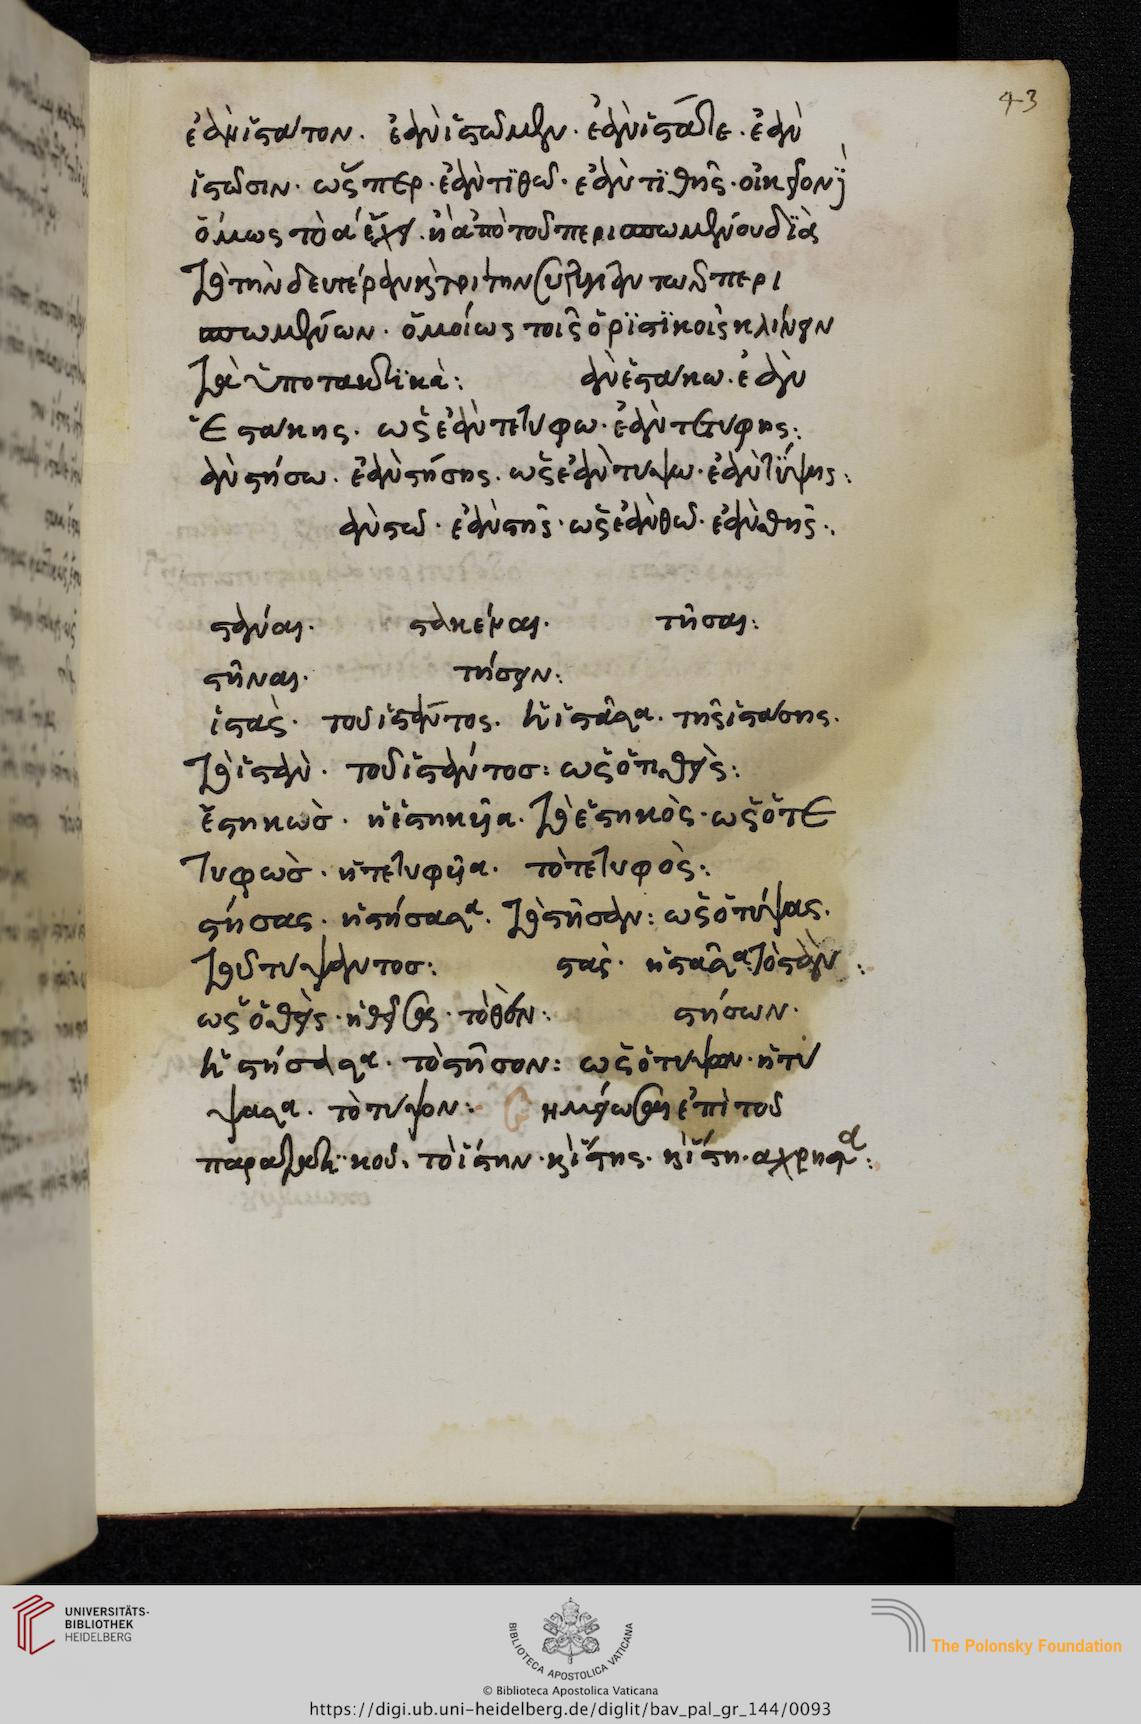 43
ἐὰν ἵστατον. ἐὰν ἱστῶμεν. ἐὰν ἱστᾶτε. ἐὰν
ἱστῶσιν. ὥσπερ. ἐὰν τιθῶ. ἐὰν τιθῇς.
ὅμως τὸ α ἔχει. ἀπὸ τοῦ περισπωμένου διὰ
τὸ τὴν δευτέραν καὶ τρίτην συζυγίαν τῶν περι
σπωμένων. ὁμοίως τοῖς ὁριστικοῖς κλίνειν
τὰ ὑποτακτικά: ἐὰν ἑστάκω. ἐὰν
ἑστάκης. ὡς ἐὰν τετύφω. ἐὰν τετύφης:
ἐὰν στήσω. ἐὰν στήσης. ὡς ἐὰν τύψω. ἐὰν τύψης:
ἐὰν στῶ. ἐὰν στῇς. ὡς ἐὰν θῶ. ἐὰν θῇς:
στάναι. στακέναι. τῆσαι:
στῆναι. τήσειν:
ἱστάς. τοῦ ἱστάντος. ἡ ἱστᾶσα. τῆς ἱστάσης.
τὸ ἱστάν. τοῦ ἱστάντος: ὡς ὁ τιθείς:
ἑστηκώς. ἡ ἑστηκυῖα. τὸ ἑστηκός. ὡς ὁ τε
τυφώς. ἡ τετυφυῖα. τὸ τετυφός:
στήσας. ἡ στήσασα. τὸ στῆσαν: ὡς ὁ τύψας.
τοῦ τύψαντος: στάς. ἡ στᾶσα. τὸ στάν:
ὡς ὁ θείς. ἡ θεῖσα. τὸ θέν: στήσων.
ἡ στήσασα. τὸ στῆσον: ὡς ὁ τύψων. ἡ τύ
ψασα. τὸ τύψον: ἐπὶ τοῦ
παρατατικοῦ. τὸ ἵστην. καὶ ἵστης. καὶ ἵστη.
UNIVERSITÄTS-
BIBLIOTHEK
HEIDELBERG
BIBLIOTECA APOSTOLICA VATICANA
© Biblioteca Apostolica Vaticana
The Polonsky Foundation
https://digi.ub.uni-heidelberg.de/diglit/bav_pal_gr_144/0093